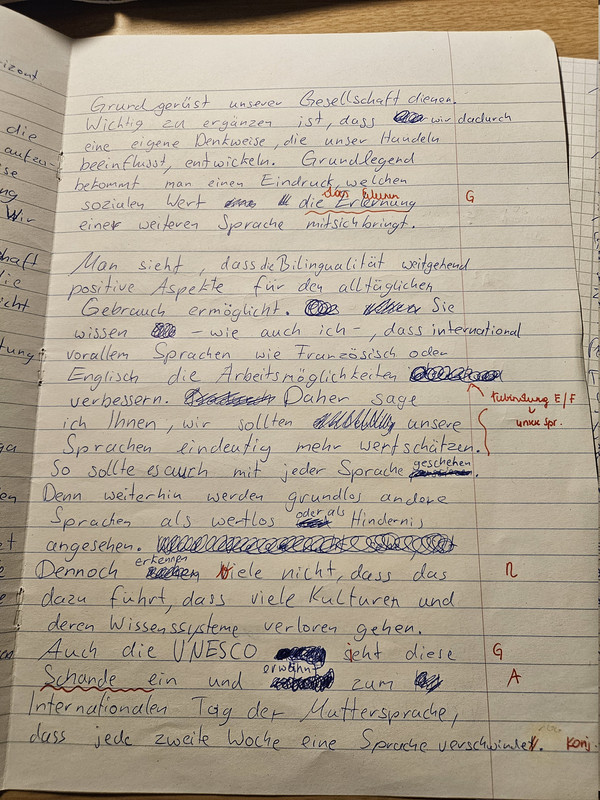 Grundgerüst unserer Gesellschaft dienen.
Wichtig zu ergänzen ist, dass wir dadurch
eine eigene Denkweise, die unser Handeln
beeinflusst, entwickeln. Grundlegend
bekommt man einen Eindruck, welchen
sozialen Wert die Erlernung G
einer weiteren Sprache mitsichbringt.
Man sieht, dass die Bilingualität weitgehend
positive Aspekte für den alltäglichen
Gebrauch ermöglicht. Sie
wissen - wie auch ich -, dass international
vorallem Sprachen wie Französisch oder
Englisch die Arbeitsmöglichkeiten
verbessern. Daher sage E/F
ich Ihnen, wir sollten unsere
Sprachen eindeutig mehr wertschätzen.
So sollte es auch mit jeder Sprache geschehen.
Denn weiterhin werden grundlos andere
Sprachen als wertlos oder als Hindernis
angesehen.
Dennoch erkennen viele nicht, dass das R
dazu führt, dass viele Kulturen und
deren Wissenssysteme verloren gehen.
Auch die UNESCO diese G
Schande ein und erwähnt zum A
Internationalen Tag der Muttersprache,
dass jede zweite Woche eine Sprache verschwindet. Konj.